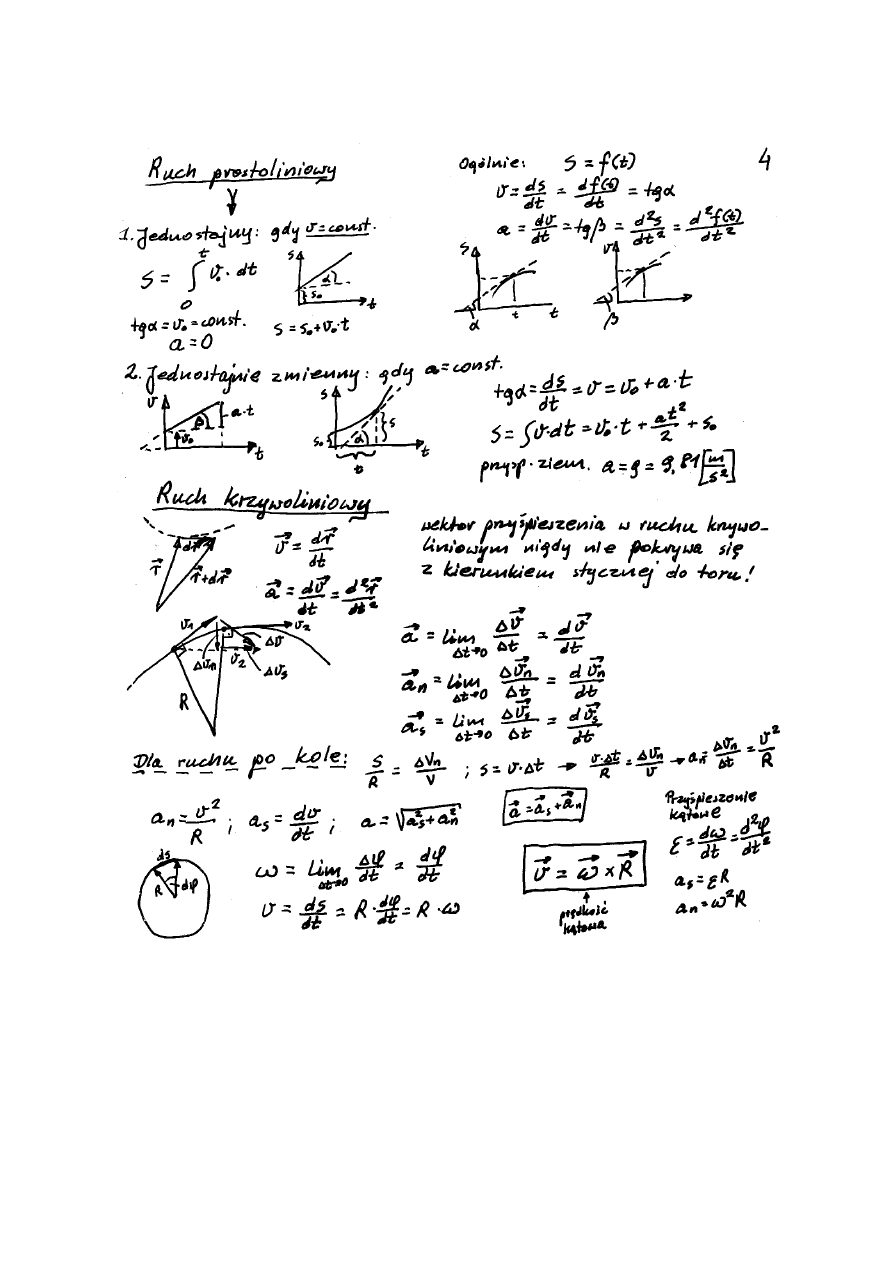 4
Ruch prostoliniowy
1. Jednostajny: gdy v = const.
S = ∫₀ᵗ v₀ · dt
S
α
s₀
t
tgα = v₀ = const.
a = 0
S = s₀ + v₀ · t
Ogólnie: S = f(t)
v = ds/dt = df(t)/dt = tgα
a = dv/dt = tgβ = d²s/dt² = d²f(t)/dt²
S
α
t
t
v
β
2. Jednostajnie zmienny: gdy a = const.
v
β
a·t
v₀
t
S
s₀
α
s
t
t
tgα = ds/dt = v = v₀ + a·t
S = ∫v·dt = v₀·t + at²/2 + s₀
przysp. ziem. a = g = 9,81 [m/s²]
Ruch krzywoliniowy
dr⃗
r⃗
r⃗+dr⃗
v⃗ = dr⃗/dt
a⃗ = dv⃗/dt = d²r⃗/dt²
wektor przyśpieszenia w ruchu krzywo-
liniowym nigdy nie pokrywa się
z kierunkiem stycznej do toru!
v₁
v₂
Δv
Δvₙ
v₂
Δvₛ
R
a⃗ = lim Δt→0 Δv⃗/Δt = dv⃗/dt
a⃗ₙ = lim Δt→0 Δv⃗ₙ/Δt = dv⃗ₙ/dt
a⃗ₛ = lim Δt→0 Δv⃗ₛ/Δt = dv⃗ₛ/dt
Dla ruchu po kole: S/R = ΔVₙ/V ; s = v·Δt → v·Δt/R = Δvₙ/v → aₙ = Δvₙ/Δt = v²/R
aₙ = v²/R ; aₛ = dv/dt ; a = √(aₛ²+aₙ²)
a⃗ = a⃗ₛ + a⃗ₙ
Przyśpieszenie
kątowe
ε = dω/dt = d²φ/dt²
aₛ = εR
aₙ = ω²R
ds
R
dφ
ω = lim Δt→0 Δφ/dt = dφ/dt
v = ds/dt = R · dφ/dt = R · ω
v⃗ = ω⃗ × R⃗
prędkość
kątowa